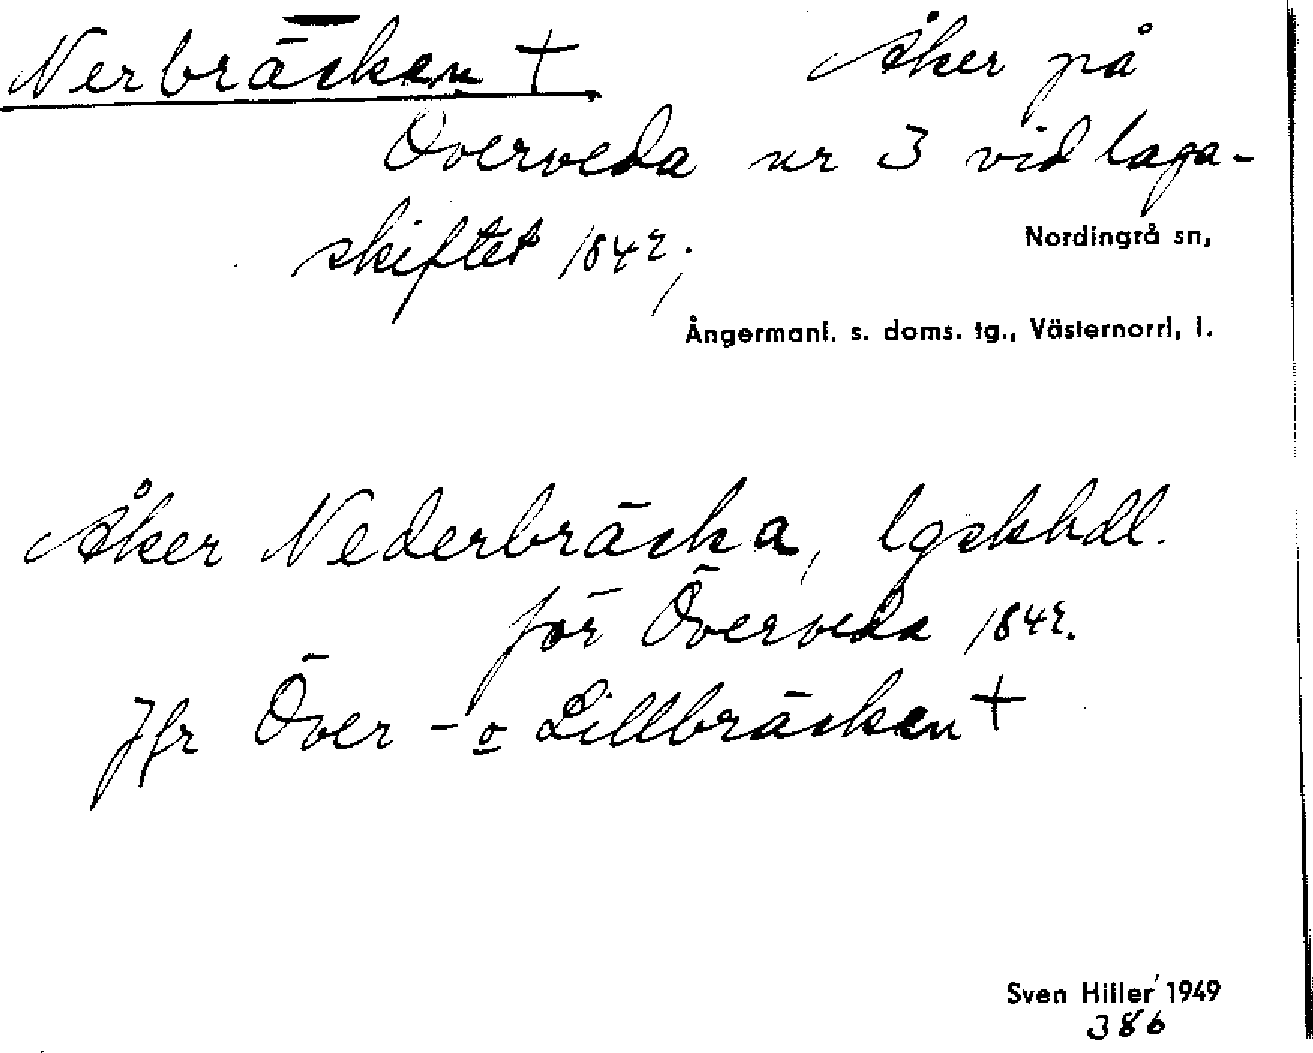 Nerbräcken † Åker på
Överveda nr 3 vid laga-
skiftet 1842;
Nordingrå sn,
Ångermanl. s. doms. tg., Västernorrl. l.
Åker Nederbräcka, lgskhdl.
för Överveda 1842.
Jfr Över- o Lillbräcken †
Sven Hiller 1949
386